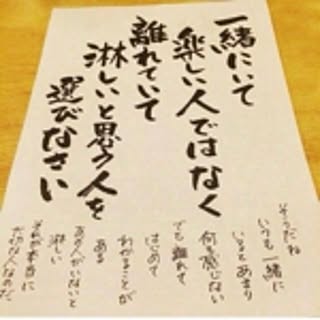 一緒にいて
楽しい人ではなく
離れていて
淋しいと思う人を
選びなさい
そうだね
いつも一緒に
いるとあまり
何も感じない
でも離れて
はじめて
わかることが
ある
あの人がいないと
淋しい
それが本当に
大切な人なのだ